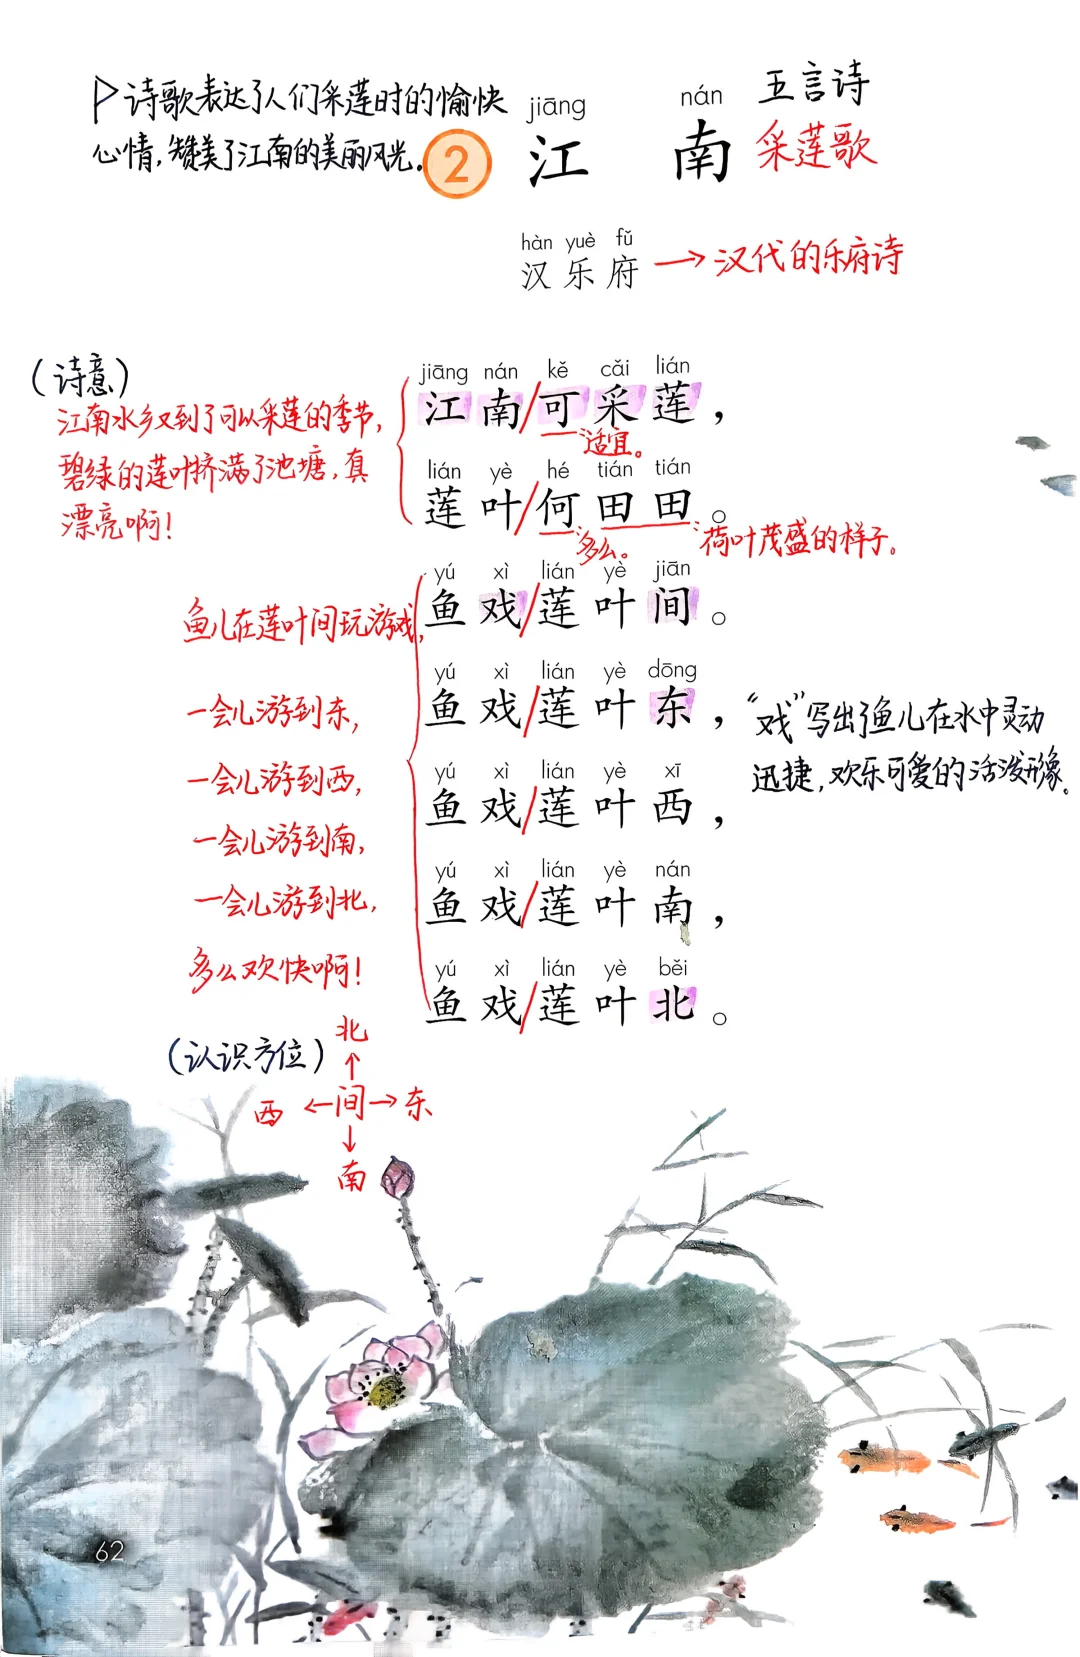 诗歌表达了人们采莲时的愉快
心情,赞美了江南的美丽风光。
2
jiāng nán
江南
五言诗
采莲歌
hàn yuè fǔ
汉乐府
→汉代的乐府诗
(诗意)
江南水乡又到了可以采莲的季节,
碧绿的莲叶挤满了池塘,真
漂亮啊!
jiāng nán kě cǎi lián
江南/可采莲,
:适宜。
lián yè hé tián tián
莲叶/何田田。
:多么。
:荷叶茂盛的样子。
鱼儿在莲叶间玩游戏,
yú xì lián yè jiān
鱼戏/莲叶间。
一会儿游到东,
yú xì lián yè dōng
鱼戏/莲叶东,
"戏"写出了鱼儿在水中灵动
迅捷,欢乐可爱的活泼形象。
一会儿游到西,
yú xì lián yè xī
鱼戏/莲叶西,
一会儿游到南,
yú xì lián yè nán
鱼戏/莲叶南,
一会儿游到北,
多么欢快啊!
yú xì lián yè běi
鱼戏/莲叶北。
(认识方位)
北
↑
西←间→东
↓
南
62